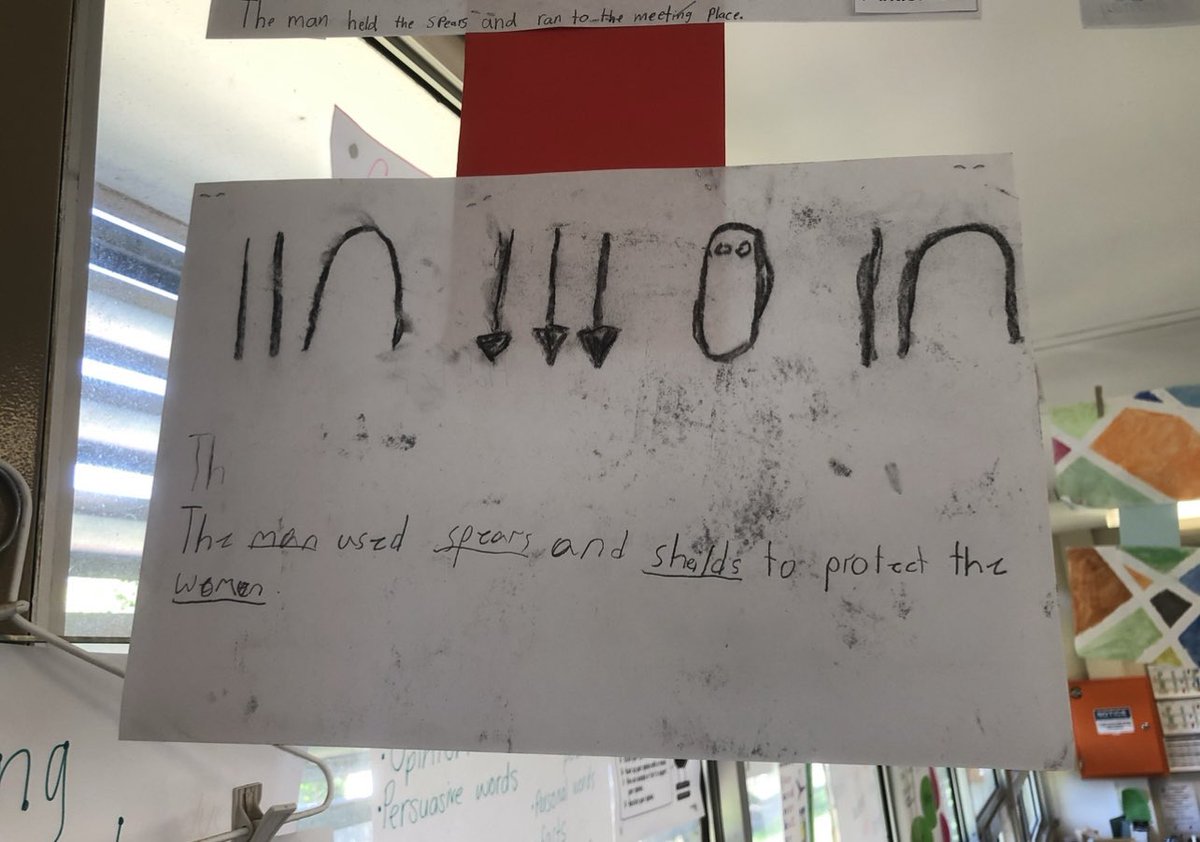 The man held the spears and ran to the meeting place.
Th
The man used spears and shelds to protect the
women.
ng
Persuasive words
personal words
facts
NOTICE